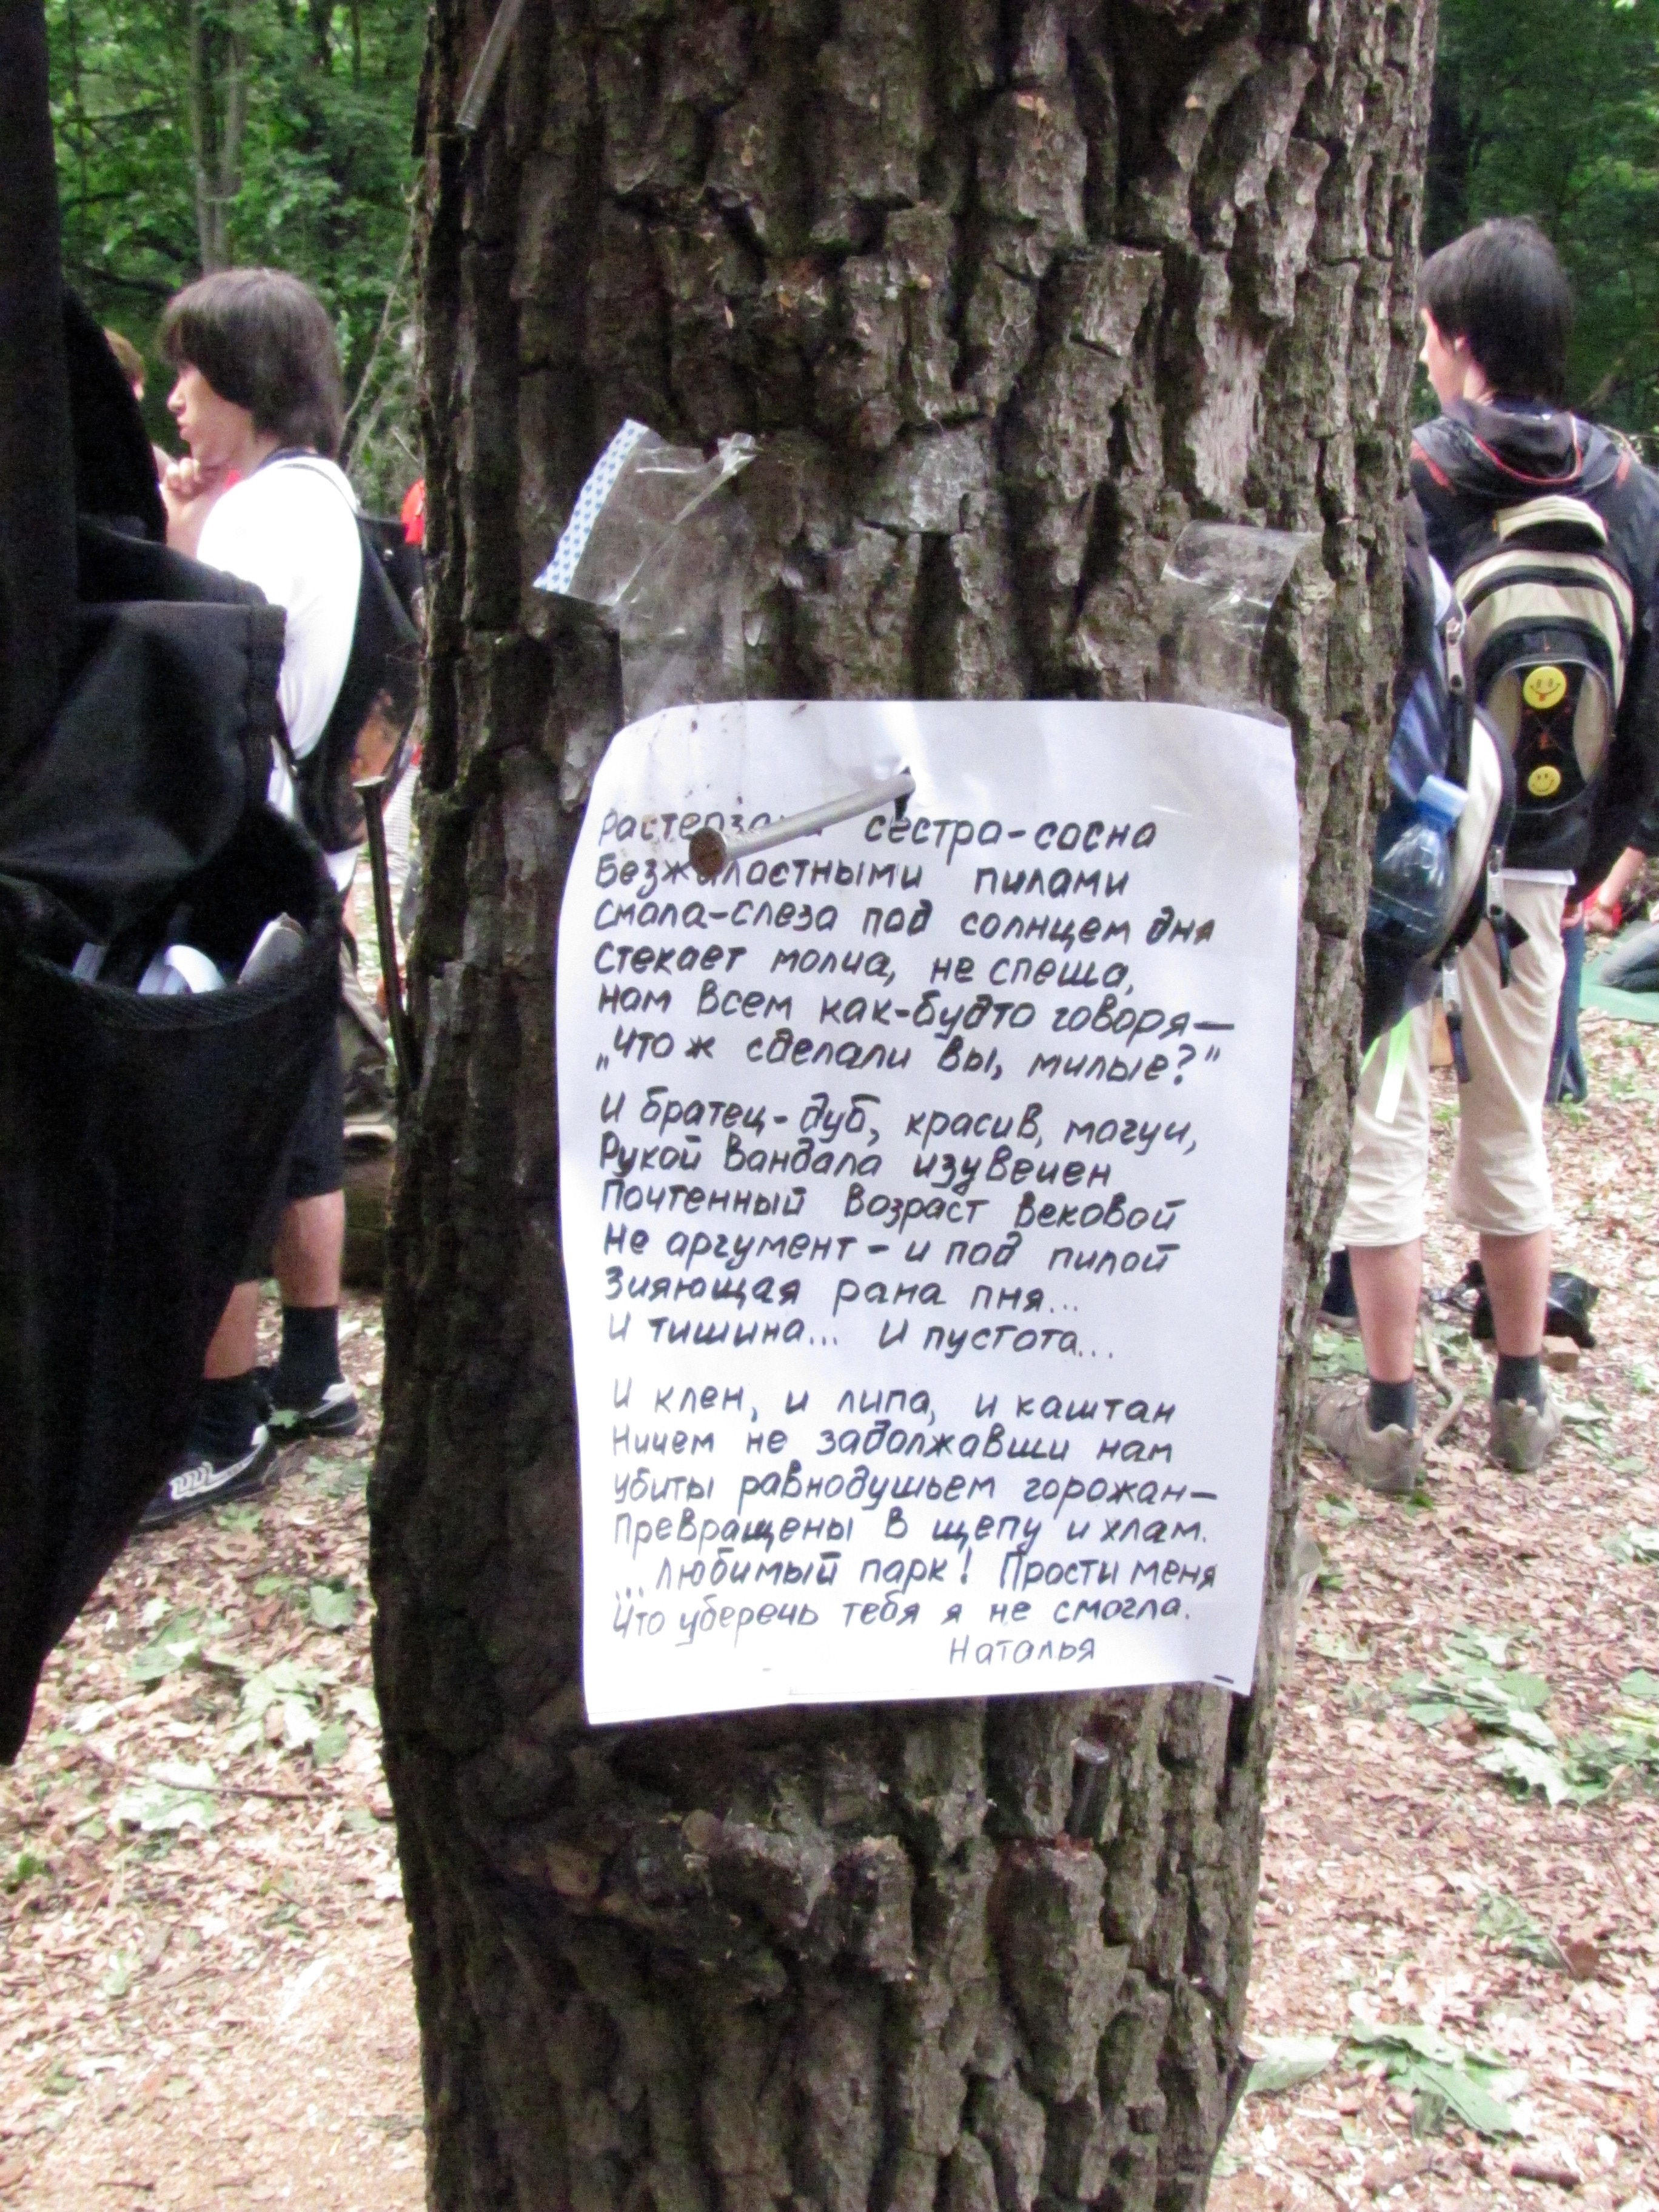 Растерзана сестра-сосна
Безжалостными пилами
Смола-слеза под солнцем дня
Стекает молча, не спеша,
Нам всем как-будто говоря—
„Что ж сделали вы, милые?"
И братец-дуб, красив, могуч,
Рукой вандала изувечен
Почтенный возраст вековой
Не аргумент - и под пилой
Зияющая рана пня...
И тишина... И пустота...
И клен, и липа, и каштан
Ничем не задолжавши нам
Убиты равнодушьем горожан—
Превращены в щепу и хлам.
...Любимый парк! Прости меня
Что уберечь тебя я не смогла.
Наталья